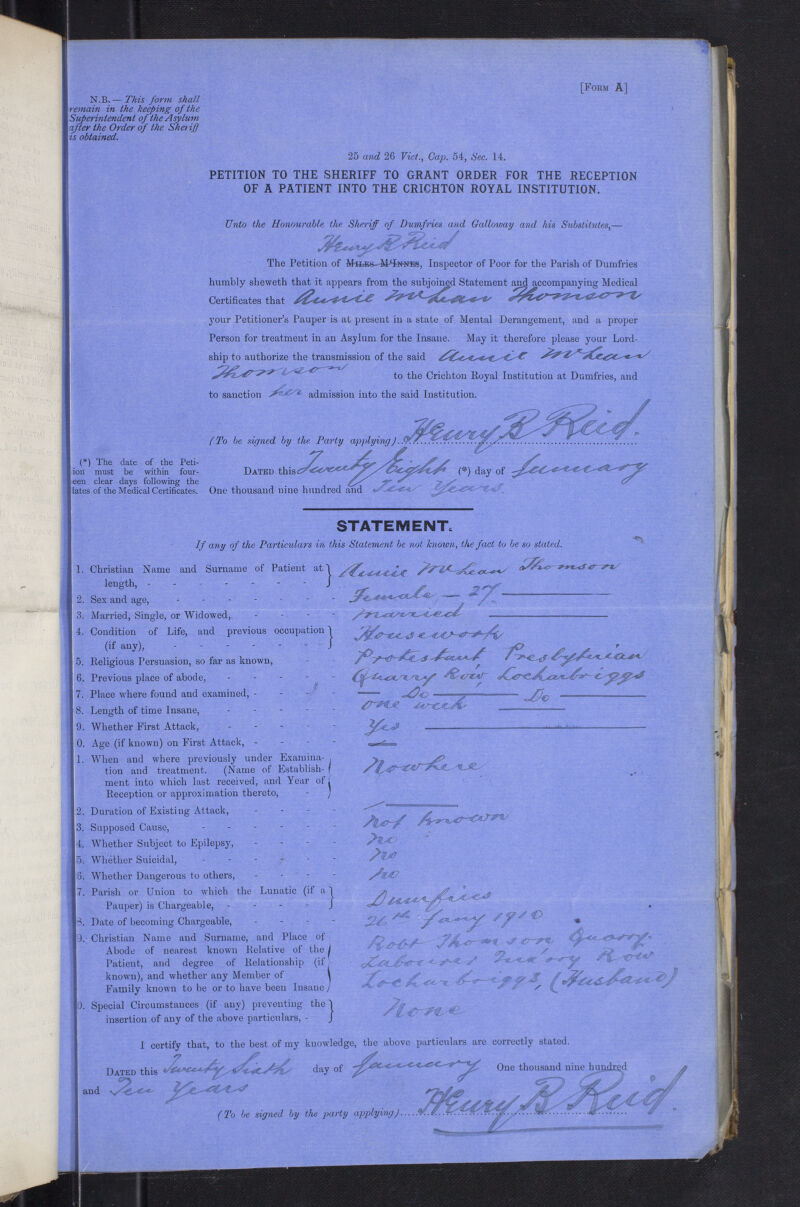 [FORM A]
N.B.— This form shall
remain in the keeping of the
Superintendent of the Asylum
after the Order of the Sheriff
is obtained.
25 and 26 Vict., Cap. 54, Sec. 14.
PETITION TO THE SHERIFF TO GRANT ORDER FOR THE RECEPTION
OF A PATIENT INTO THE CRICHTON ROYAL INSTITUTION.
Unto the Honourable the Sheriff of Dumfries and Galloway and his Substitutes,—
Henry B Reid
The Petition of MILES M'INNES, Inspector of Poor for the Parish of Dumfries
humbly sheweth that it appears from the subjoined Statement and accompanying Medical
Certificates that Annie McLean Thomson
your Petitioner's Pauper is at present in a state of Mental Derangement, and a proper
Person for treatment in an Asylum for the Insane. May it therefore please your Lord-
ship to authorize the transmission of the said Annie McLean
Thomson to the Crichton Royal Institution at Dumfries, and
to sanction her admission into the said Institution.
(To be signed by the Party applying) Henry B Reid.
(*) The date of the Peti-
ion must be within four-
een clear days following the
lates of the Medical Certificates.
DATED this Twenty Eighth (*) day of January
One thousand nine hundred and Ten Years.
STATEMENT.
If any of the Particulars in this Statement be not known, the fact to be so stated.
1. Christian Name and Surname of Patient at
length, - Annie McLean Thomson
2. Sex and age, - Female — 27
3. Married, Single, or Widowed, - married
4. Condition of Life, and previous occupation
(if any), - Housework
5. Religious Persuasion, so far as known, Protestant Presbyterian
6. Previous place of abode, - Quarry Row, Locharbriggs
7. Place where found and examined, - — Do — Do —
8. Length of time Insane, - one week
9. Whether First Attack, - Yes
0. Age (if known) on First Attack, - —
1. When and where previously under Examina-
tion and treatment. (Name of Establish-
ment into which last received, and Year of
Reception or approximation thereto, Nowhere
2. Duration of Existing Attack, - —
3. Supposed Cause, - Not known
4. Whether Subject to Epilepsy, - No
5. Whether Suicidal, - No
6. Whether Dangerous to others, - No
7. Parish or Union to which the Lunatic (if a
Pauper) is Chargeable, - Dumfries
8. Date of becoming Chargeable, - 26th Jany 1910
9. Christian Name and Surname, and Place of
Abode of nearest known Relative of the
Patient, and degree of Relationship (if
known), and whether any Member of
Family known to be or to have been Insane
Robt Thomson Quarry
Labourer Quarry Row
Locharbriggs, (Husband)
0. Special Circumstances (if any) preventing the
insertion of any of the above particulars, - None
I certify that, to the best of my knowledge, the above particulars are correctly stated.
DATED this Twenty Sixth day of January One thousand nine hundred
and Ten Years
(To be signed by the party applying) Henry B Reid.